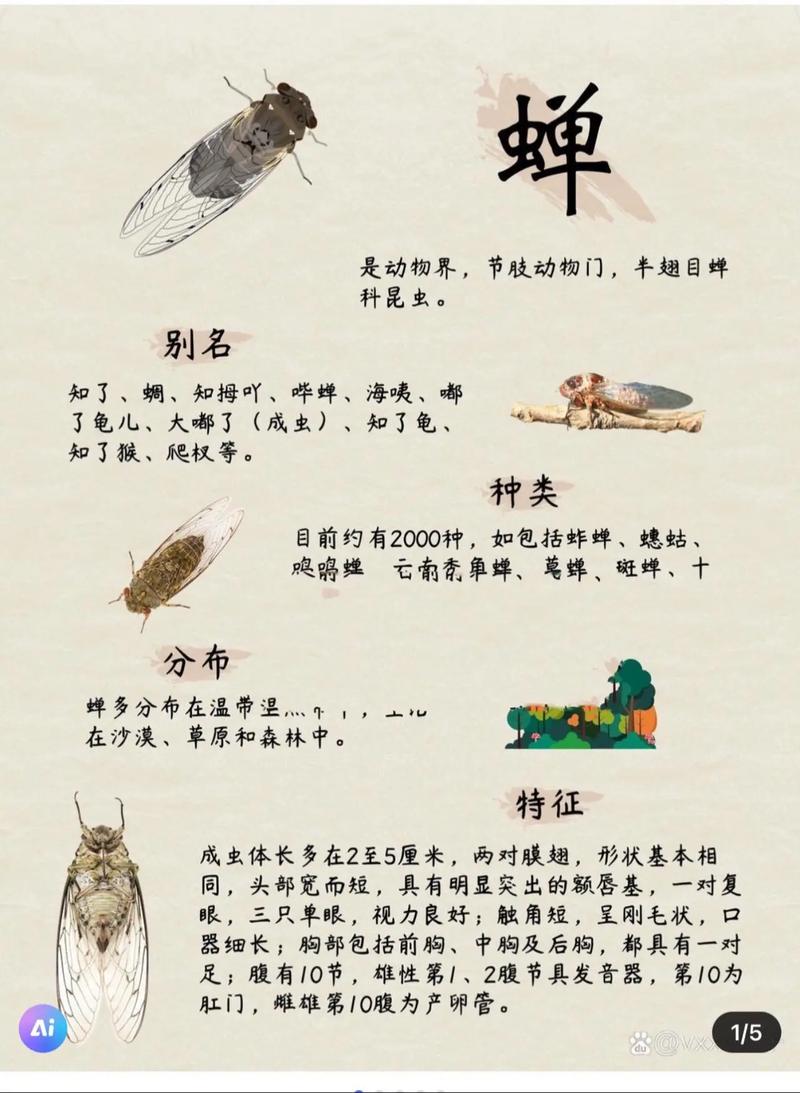 蝉
是动物界，节肢动物门，半翅目蝉
科昆虫。
别名
知了、蜩、知拇吖、哔蝉、海咦、嘟
了龟儿、大嘟了（成虫）、知了龟、
知了猴、爬杈等。
种类
目前约有2000种，如包括蚱蝉、蟪蛄、
云南秃角蝉、草蝉、斑蝉、十
分布
蝉多分布在温带湿
在沙漠、草原和森林中。
特征
成虫体长多在2至5厘米，两对膜翅，形状基本相
同，头部宽而短，具有明显突出的额唇基，一对复
眼，三只单眼，视力良好；触角短，呈刚毛状，口
器细长；胸部包括前胸、中胸及后胸，都具有一对
足；腹有10节，雄性第1、2腹节具发音器，第10为
肛门，雌雄第10腹为产卵管。
Ai
du
1/5